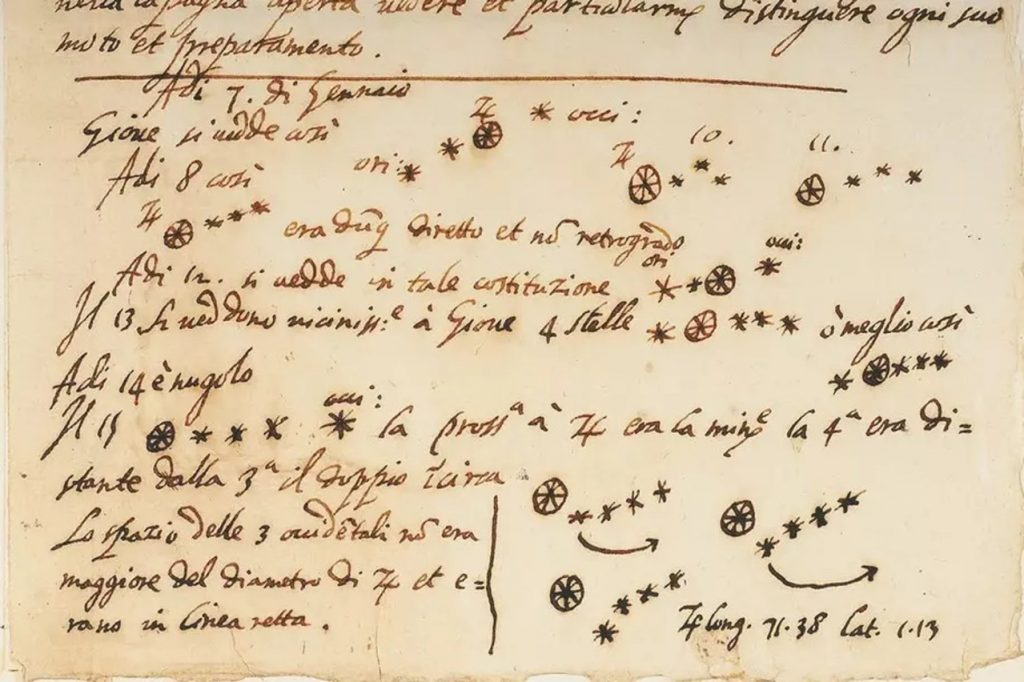 nella capagna aperta vedere et particolarmẽ distinguere ogni suo
moto et preparamento.
Adi 7. di Gennaio
Giove si vedde così ♃ occi:
ori: ♃ 10. 11.
Adi 8 così
♃ era dũq diretto et nõ retrogrado
Adi 12. si vedde in tale costituzione ori occi:
Il 13 si veddono viciniss:e à Giove 4 stelle ò meglio così
Adi 14 è nugolo
Il 15 occi: la prossa à ♃ era la minẽ la 4a era di=
stante dalla 3a il doppio ĩcirca
Lo spazio delle 3 occidẽtali nõ era
maggiore del diametro di ♃ et e=
rano in linea retta.
♃ long. 71.38 lat. 1.13